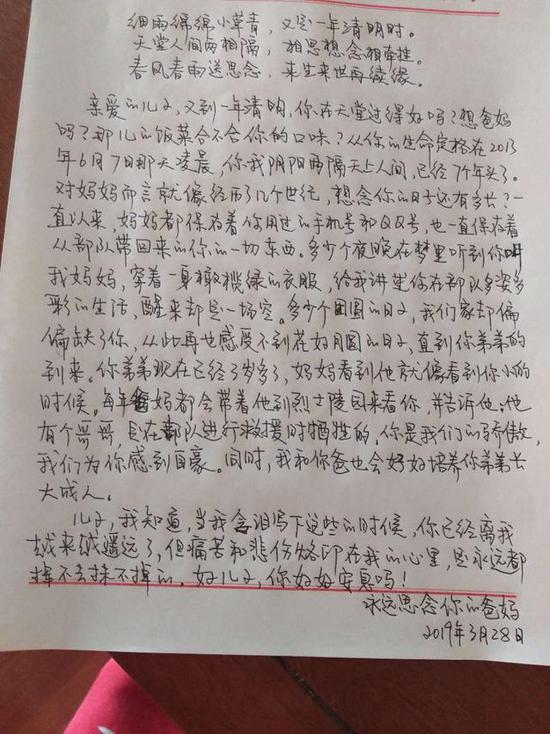 细雨绵绵小草青，又是一年清明时。
天堂人间两相隔，相思想念相牵挂。
春风春雨送思念，来生来世再续缘。
亲爱的儿子，又到一年清明，你在天堂过得好吗？想爸妈
吗？那儿的饭菜合不合你的口味？从你的生命定格在2013
年6月7日那天凌晨，你我阴阳两隔天上人间，已经7个年头了。
对妈妈而言就像经历了几个世纪，想念你的日子还有多长？一
直以来，妈妈都保存着你用过的手机号和QQ号，也一直保存着
从部队带回来的你的一切东西。多少个夜晚在梦里听到你叫
我妈妈，穿着一身橄榄绿的衣服，给我讲述你在部队多姿多
彩的生活，醒来却是一场空。多少个团圆的日子，我们家却偏
偏缺了你，从此再也感受不到花好月圆的日子，直到你弟弟的
到来。你弟弟现在已经3岁多了，妈妈看到他就像看到你小的
时候。每年爸妈都会带着他到烈士陵园来看你，并告诉他：他
有个哥哥，是在部队进行救援时牺牲的，你是我们的骄傲，
我们为你感到自豪。同时，我和你爸也会好好培养你弟弟长
大成人。
儿子，我知道，当我含泪写下这些的时候，你已经离我
越来越遥远了，但痛苦和悲伤烙印在我的心里，是永远都
挥不去抹不掉的，好儿子，你好好安息吗！
永远思念你的爸妈
2019年3月28日